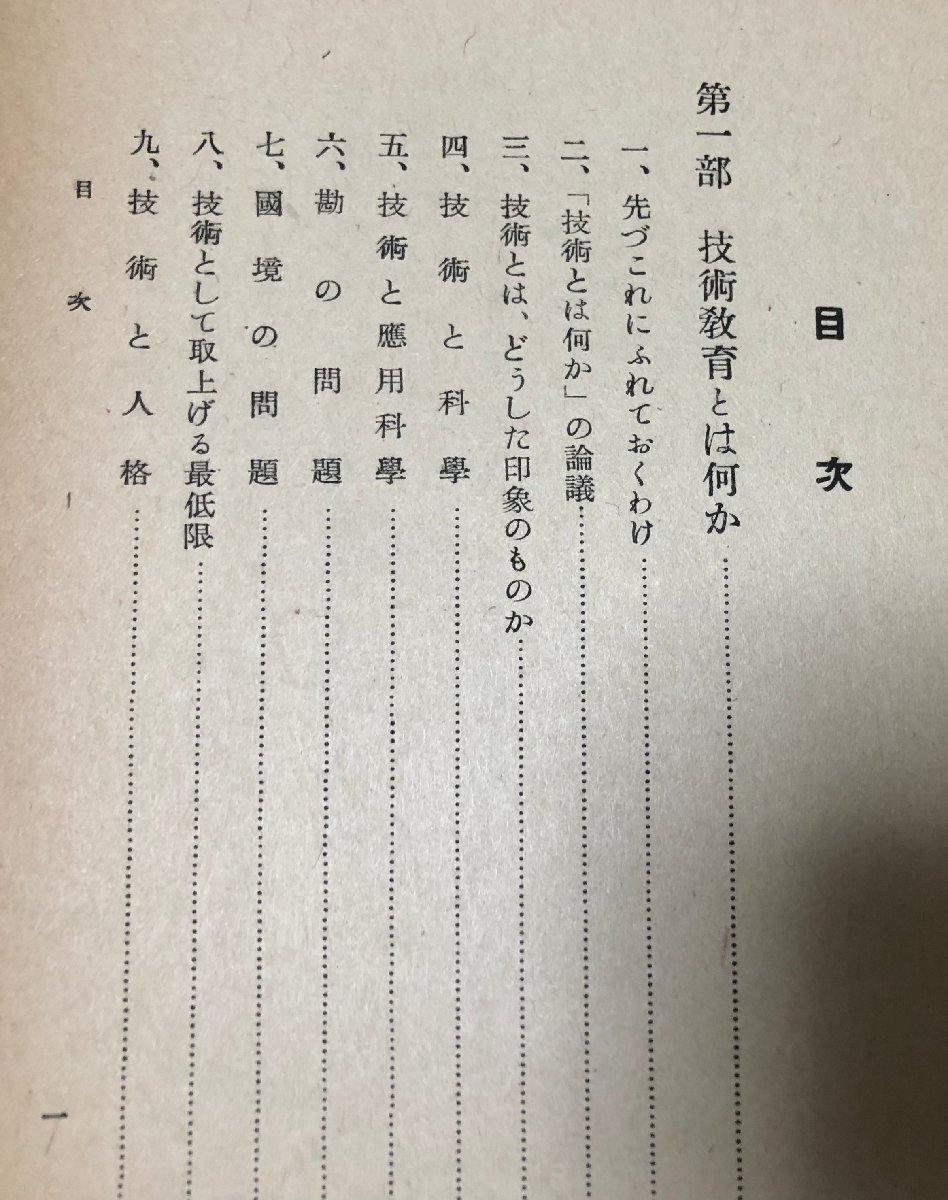 目次
第一部 技術教育とは何か
一、先づこれにふれておくわけ
二、「技術とは何か」の論議
三、技術とは、どうした印象のものか
四、技術と科學
五、技術と應用科學
六、勘の問題
七、國境の問題
八、技術として取上げる最低限
九、技術と人格
目次
一